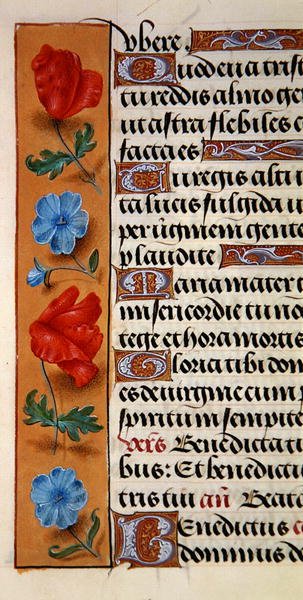 vbere.
Quod eua trist
tu reddis almo ger
ut astra flebiles
facta es
Tu regis alti
ta lucis fulgida
per virginem gente
plaudite
Maria mater
misericordie tu no
tege et hora mortis
Gloria tibi do
es de virgine cum
spiritu in sempite
vers Benedicta
bus: Et benedictu
tris tui an Beat
Benedictus
dominus de